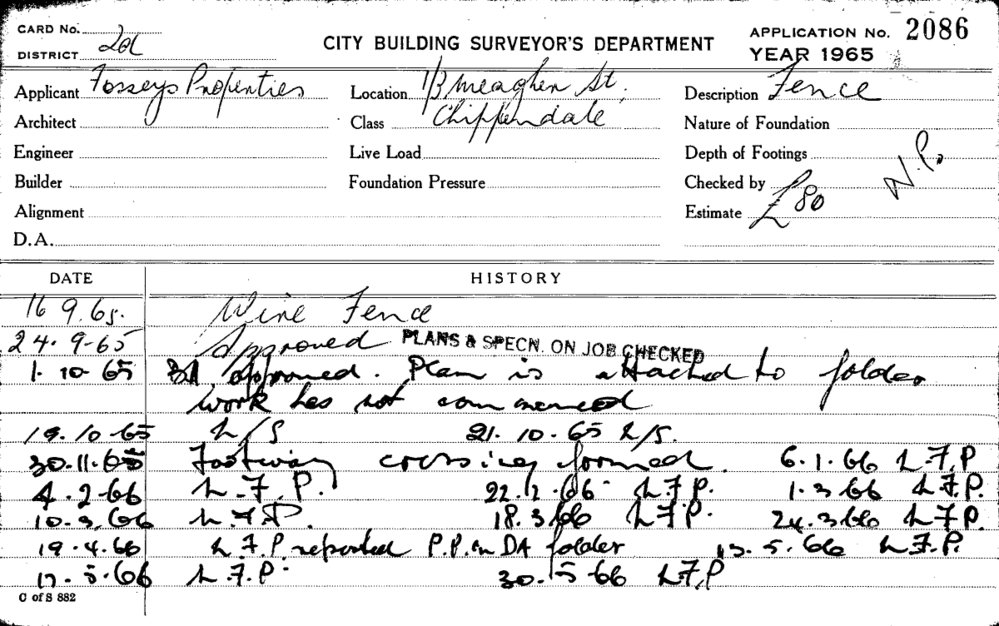 CARD No.
DISTRICT 2oL
CITY BUILDING SURVEYOR'S DEPARTMENT
APPLICATION No. 2086
YEAR 1965
Applicant Fosseys Properties
Location 1/3 Meagher St,
Description Fence
Architect
Class Chippendale
Nature of Foundation
Engineer
Live Load
Depth of Footings
Builder
Foundation Pressure
Checked by
N.P.
Alignment
Estimate £80
D.A.
DATE HISTORY
16 9.65. Wire Fence
24.9-65 Approved PLANS & SPECN. ON JOB CHECKED
1.10.65 BA approved. Plan is attached to folder
work has not commenced
19.10.65 L/S 21.10.65 L/S.
30.11.65 Footway crossing formed. 6.1.66 L.F.P
4.2.66 L.F.P. 22.2.66 L F P. 1.3.66 L.F.P.
10.3.66 L.F.P. 18.3.66 L F P. 24.3.66 L F P.
19.4.66 L.F.P. reported P.P. on DA folder 13.5.66 L.F.P.
17.5.66 L.F.P. 30.5.66 L.F.P
C of S 882